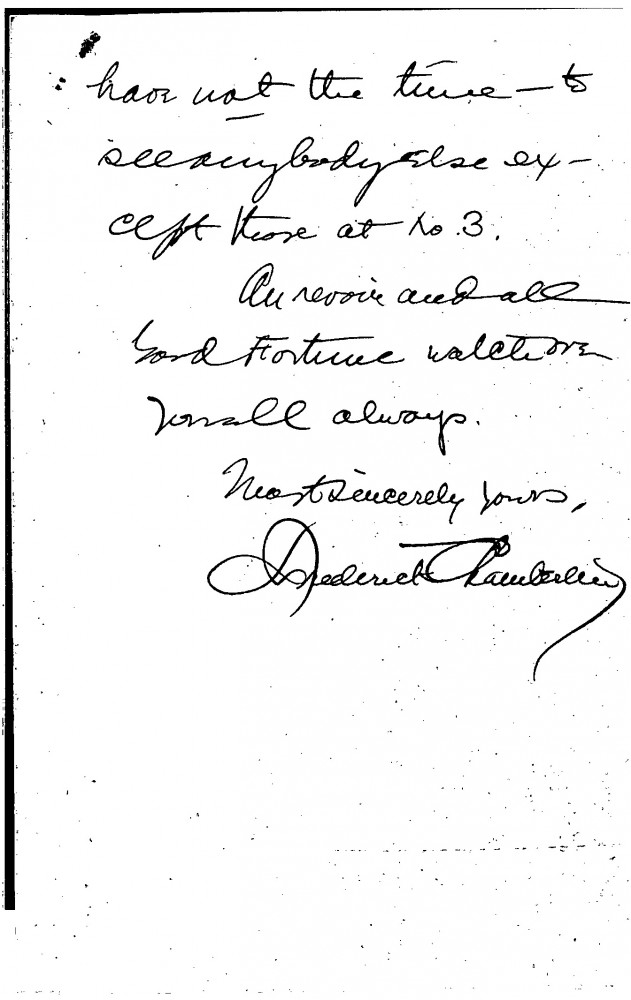 have not the time — to
see anybody else ex-
cept those at No. 3.
Au revoir and all
Good Fortune watch over
you all always.
Most sincerely yours,
Frederick Chamberlin